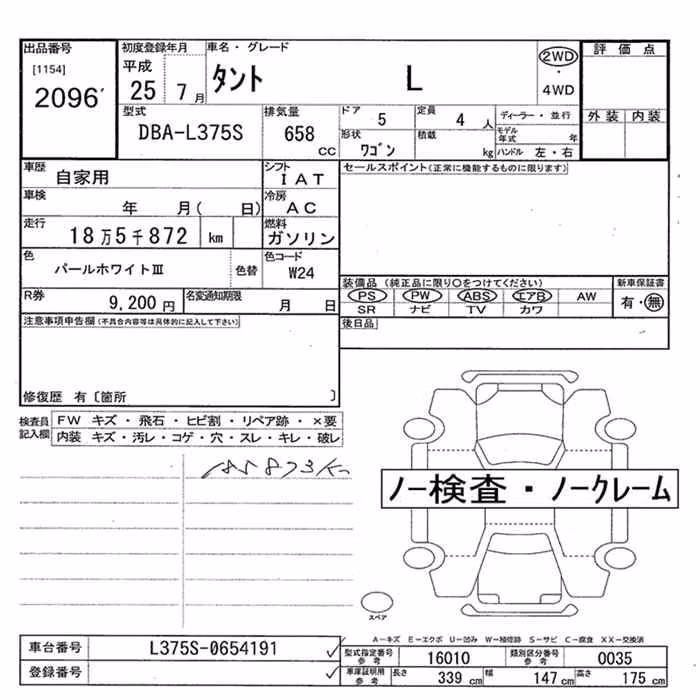 出品番号
[1154]
2096
初度登録年月
平成
25 7月
車名・グレード
タント L
2WD
・
4WD
評価点
外装 内装
型式
DBA-L375S
排気量
658
CC
ドア 5
定員 4 人
形状 ワゴン
積載 kg
ディーラー・並行
モデル年式 年
ハンドル 左・右
車歴
自家用
シフト
IAT
車検
年 月( 日)
冷房
AC
走行
18万5千872 km
燃料
ガソリン
色
パールホワイトⅢ 色替
色コード
W24
R券 9,200円
名変通知期限 月 日
セールスポイント(正常に機能するものに限ります)
装備品 (純正品に限り○をつけてください)
PS PW ABS エアB AW
SR ナビ TV カワ
新車保証書
有・無
後日品
注意事項申告欄(不具合内容等は具体的に記入して下さい)
修復歴 有〔箇所 〕
検査員記入欄
FW キズ・飛石・ヒビ割・リペア跡・×要
内装 キズ・汚レ・コゲ・穴・スレ・キレ・破レ
185873Km
ノー検査・ノークレーム
スペア
A-キズ E-エクボ U-凹み W-補修跡 S-サビ C-腐食 XX-交換済
車台番号 L375S-0654191
登録番号
型式指定番号参考 16010
類別区分番号参考 0035
車庫証明用参考 長さ 339 cm 幅 147 cm 高さ 175 cm